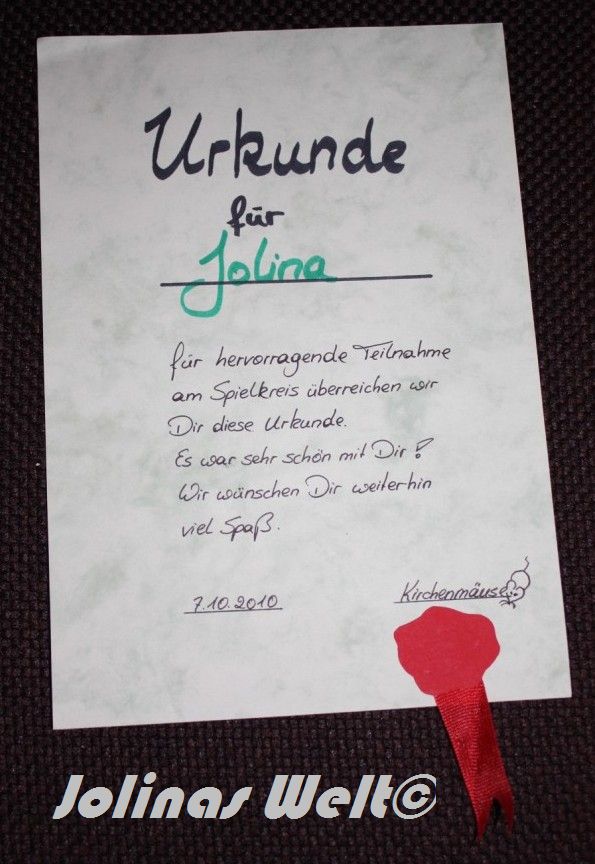 Urkunde
für
Jolina
für hervorragende Teilnahme
am Spielkreis überreichen wir
Dir diese Urkunde.
Es war sehr schön mit Dir!
Wir wünschen Dir weiterhin
viel Spaß.
7.10.2010 Kirchenmäuse
Jolinas Welt©